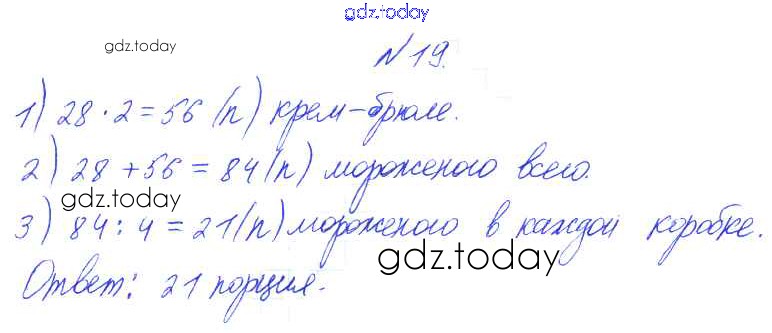 gdz.today
gdz.today
№19.
1) 28 · 2 = 56 (п) крем-брюле.
2) 28 + 56 = 84 (п) мороженого всего.
gdz.today
3) 84 : 4 = 21 (п) мороженого в каждой коробке.
gdz.today
Ответ: 21 порция.